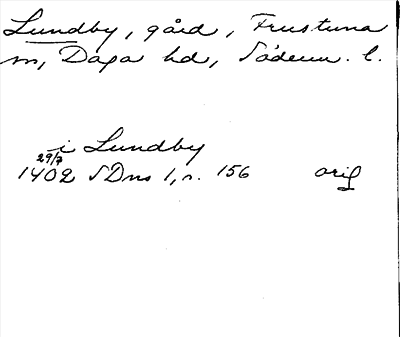 Lundby, gård, Frustuna
sn, Daga hd, Söderm. l.
i Lundby
29/7
1402 SDns 1, n. 156 orig